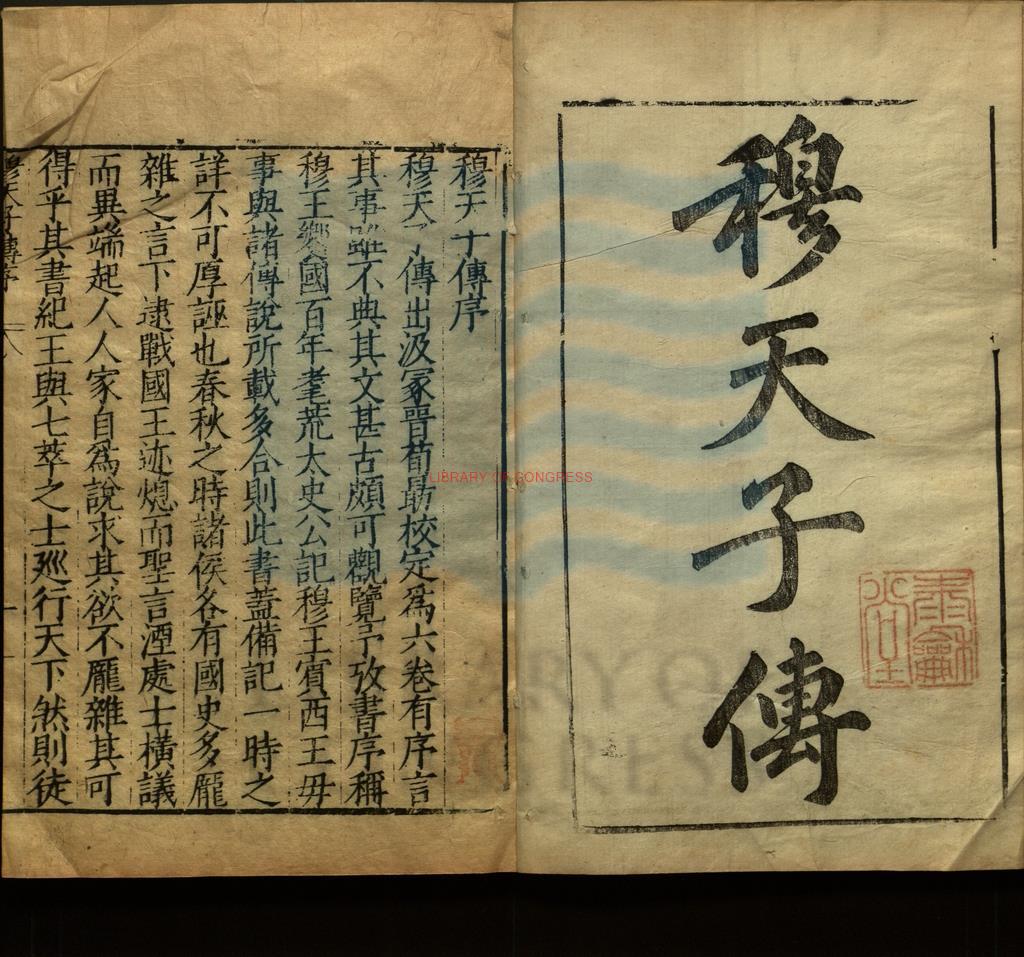 穆天子傳
穆天子傳序
穆天子傳出汲冢晉荀勗校定爲六卷有序言
其事雖不典其文甚古頗可觀覽予攷書序稱
穆王饗國百年耄荒太史公記穆王賓西王毋
事與諸傳說所載多合則此書蓋備記一時之
詳不可厚誣也春秋之時諸侯各有國史多龐
雜之言下逮戰國王迹熄而聖言湮處士橫議
而異端起人人家自爲說求其欲不龐雜其可
得乎其書紀王與七萃之士廵行天下然則徒
穆天子傳序
LIBRARY OF CONGRESS